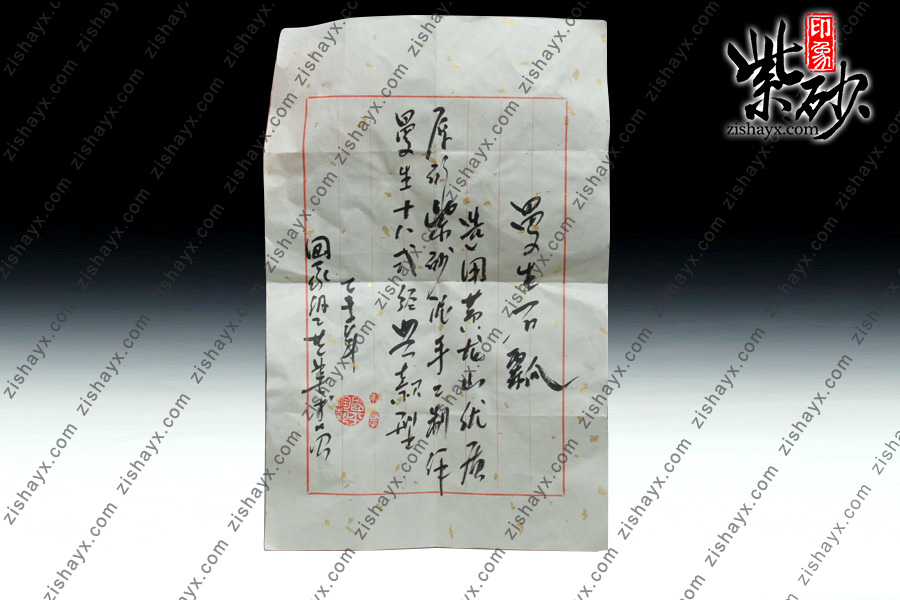 曼生石瓢
选用黄龙山优质
原矿紫砂泥手工制作
曼生十八式经典款型
年
国家级工艺美术师
紫砂
印象
zishayx.com